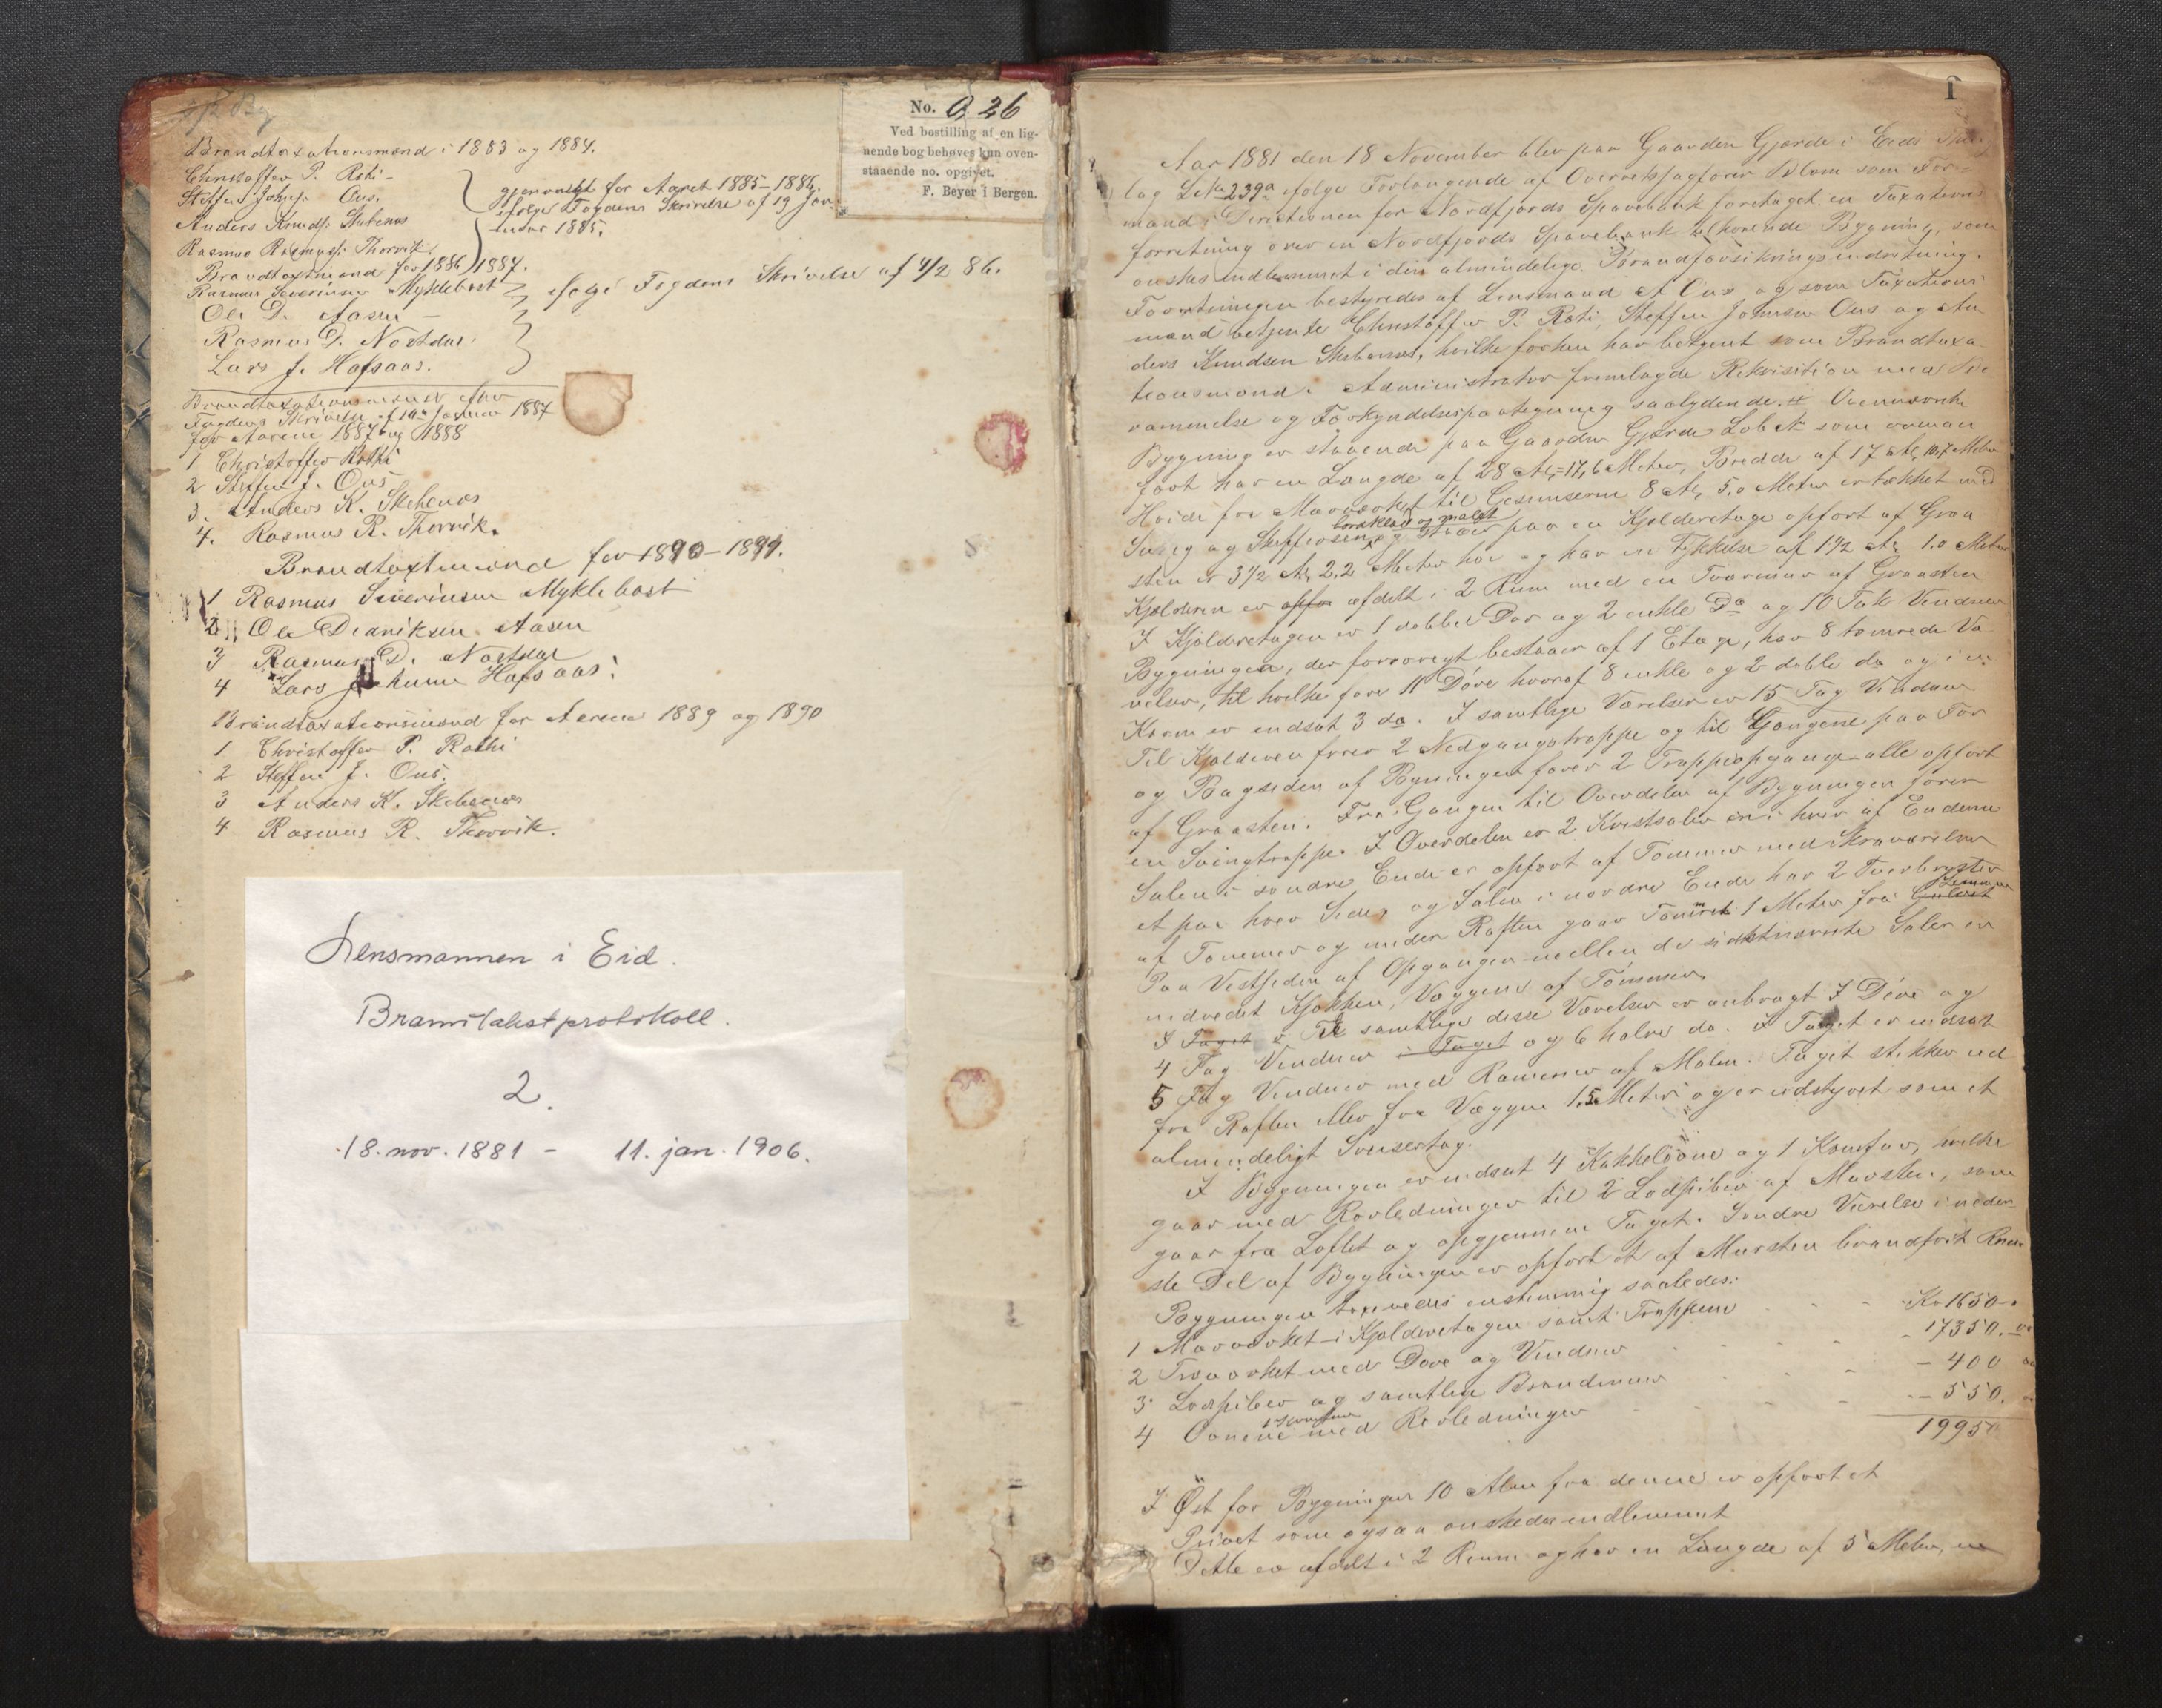 No. Q 26
Ved bestilling af en lig-
nende bog behøves kun oven-
staaende no. opgivet.
F. Beyer i Bergen.
Brandtaxationsmænd i 1883 og 1884.
Christoffer P. Roti -
Steffen Johns. Ous.
Anders Knuds. Skebenæs
Rasmus Rasmuss. Thorvik
gjenvalgt for Aaret 1885-1886
ifølge Fogdens Skrivelse af 19 Jan
1885.
Brandtaxtmænd for 1886 1887.
Rasmus Severinsen Myklebost
Ole D. Aasen -
Rasmus D. Nostdal
Lars J. Hafsaas.
ifølge Fogdens Skrivelse af 4/2 86.
Brandtaxationsmænd efter
Fogdens Skrivelse af Januar 1887
for Aarene 1887 og 1888
1 Christoffer Rothi
2 Steffen J. Ous
3. Anders K. Skebenæs
4. Rasmus R. Thorvik.
Brandtaxtmænd for 1890-1891.
1 Rasmus Severinsen Myklebost
2 Ole Didriksen Aasen
3 Rasmus D. Nostdal
4 Lars Hafsaas.
Brandtaxationsmænd for Aarene 1889 og 1890
1 Christoffer P. Rothi
2 Steffen J. Ous.
3 Anders K. Skebenæs
4 Rasmus R. Thorvik.
Lensmannen i Eid.
Branntakstprotokoll.
2.
18. nov. 1881 - 11. jan. 1906.
1
Aar 1881 den 18 November blev paa Gaarden Gjerde i Eids
lag 239a ifølge Forlangende af Overretssagfører Blom som For-
mand i Directionen for Nordfjords Sparebank foretaget en Taxations
forretning over en Nordfjords Sparebank tilhørende Bygning, som
ønskes indlemmet i den almindelige Brandforsikringsindretning.
Forretningen bestyredes af Lensmand A Ous og som Taxations
mænd betjente Christoffer P. Roti, Steffen Johnsen Ous og An
ders Knudsen Skebenæs, hvilke forhen har betjent som Brandtaxa
tionsmænd. Administrator fremlagde Rekvisition med Be
rammelse og Forkyndelsespaategning saalydende. # Ovennævnte
Bygning er staaende paa Gaarden Gjerde Løb N som
ført har en Længde af 28 Al, = 17,6 Meter, Bredde af 17 Al, 10,7 Meter
Høide fra Murværket til Gesimserne 8 Al, 5,0 Meter er tækket med
bordklædt og malet
Sueg og Skiffersten, og staar paa en Kjelderetage opført af Graa
sten er 3 1/2 Al, 2,2 Meter høi og har en Tykkelse af 1 1/2 Al 1.0 Meter
Kjelderen er opfør afdelt i 2 Rum med en Tværmur af Graasten
I Kjelderetagen er 1 dobbel Dør og 2 enkle Do og 10 Vinduer
Bygningen, der forøvrigt bestaaer af 1 Etage, har 8 tømrede Væ
relser, til hvilke fører 11 Døre hvoraf 8 enkle og 2 doble do og i en
Karm er indsat 3 do. I samtlige Værelser er 15 Fag Vinduer
Til Kjelderen fører 2 Nedgangstrappe og til Gangene paa For
og Bagsiden af Bygningen fører 2 Trappeopgange alle opført
af Graasten. Fra Gangen til Overdelen af Bygningen fører
en Svingtrappe. I Overdelen er 2 Kvistsaler en i hver af Enderne
Salen i søndre Ende er opført af Tømmer med Skraaværelser
et paa hver Side, og Salen i nordre Ende har 2 Tverbryster
af Tømmer og under Raften gaar Tømret 1 Meter fra
Paa Vestsiden af Opgangen mellem de sidstnævnte Saler er
indredet Kjøkken, Væggene af Tømmer.
I Taget Til samtlige disse Værelser er anbragt 7 Døre og
4 Fag Vinduer i Taget og 6 halve do. I Taget er indsat
5 Fag Vinduer med Rammer af Malm. Taget stikker ud
fra Raften eller fra Væggen 1,5 Meter og er udstyret som et
almindeligt Sveisertag.
I Bygningen er indsat 4 Kakkelovne og 1 Komfur, hvilke
gaar med Rørledninger til 2 Lodpiber af Mursten, som
gaar fra Loftet og opgjennem Taget. Søndre Værelse i neder
ste Del af Bygningen er opført et af Mursten brandfrit Rum
Bygningen taxeredes enstemmig saaledes:
1 Murværket i Kjelderetagen samt Trappene Kr 1650
2 Træværket med Døre og Vinduer - 17350.
3 Lodpiber og samtlige Brandmure - 400
4 Ovnene med Rørledninger - 550.
19950
I Øst for Bygningen 10 Alen fra denne er opført et
Privet som ogsaa ønskedes indlemmet
Dette er afdelt i 2 Rum og har en Længde af 5 Meter, en